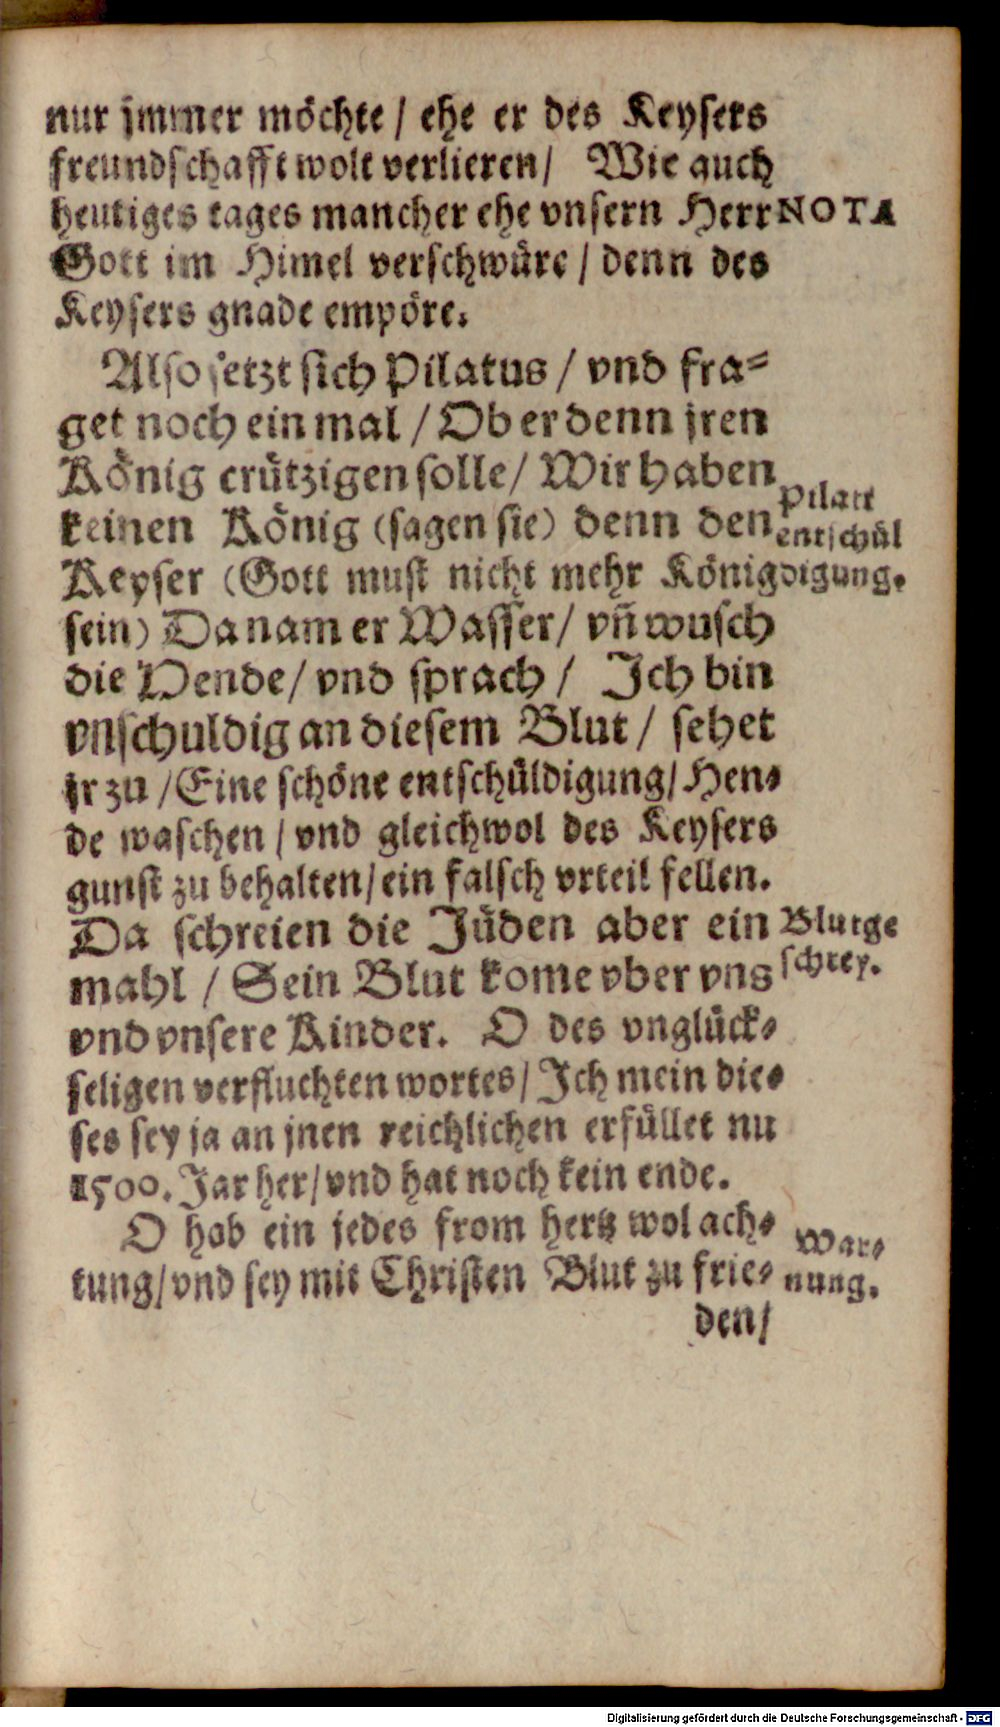 nur jmmer möchte / ehe er des Keysers
freundschafft wolt verlieren / Wie auch
heutiges tages mancher ehe vnsern Herr
NOTA
Gott im Himel verschwüre / denn des
Keysers gnade empöre.
Also setzt sich Pilatus / vnd fra⸗
get noch ein mal / Ob er denn jren
König crützigen solle / Wir haben
keinen König (sagen sie) denn den
Pilati
entschül
digung.
Keyser (Gott must nicht mehr König
sein) Da nam er Wasser / vñ wusch
die Hende / vnd sprach / Ich bin
vnschuldig an diesem Blut / sehet
jr zu / Eine schöne entschüldigung / Hen⸗
de waschen / vnd gleichwol des Keysers
gunst zu behalten / ein falsch vrteil fellen.
Da schreien die Jüden aber ein
Blutge
schrey.
mahl / Sein Blut kome vber vns
vnd vnsere Kinder. O des vnglück⸗
seligen verfluchten wortes / Ich mein die⸗
ses sey ja an jnen reichlichen erfüllet nu
1500. Jar her / vnd hat noch kein ende.
O hab ein jedes from hertz wol ach⸗
War⸗
nung.
tung / vnd sey mit Christen Blut zu frie⸗
den /
Digitalisierung gefördert durch die Deutsche Forschungsgemeinschaft - DFG